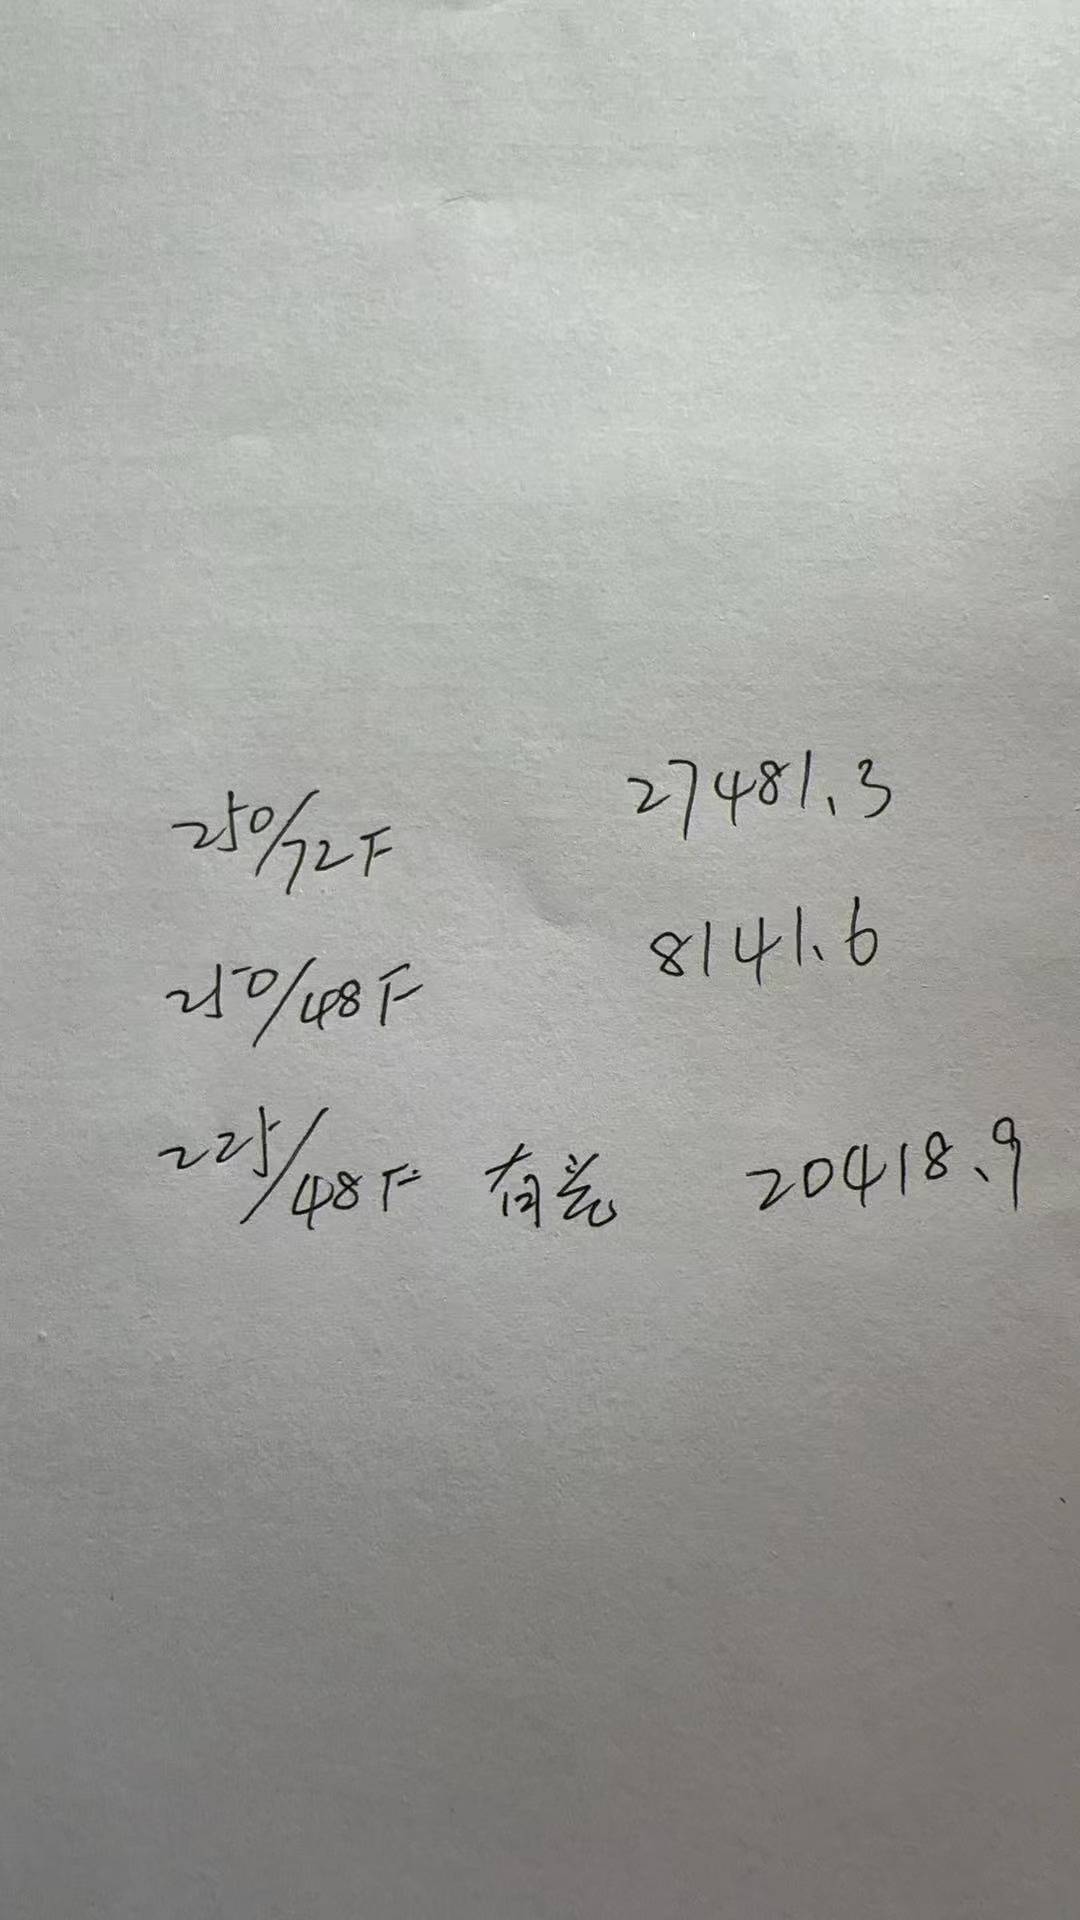 250/72F 27481.3
250/48F 8141.6
225/48F 有光 20418.9